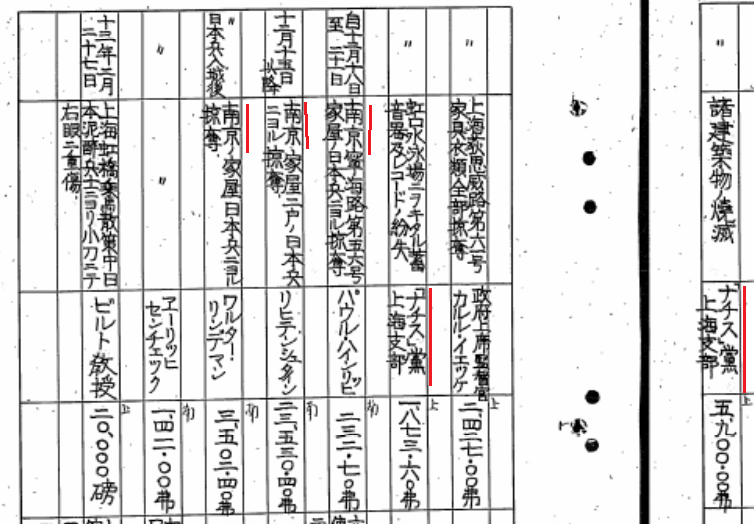 〃
諸建築物ノ燒滅
「ナチス」黨
上海支部
上
五、九〇〇・〇〇弗
〃
上海狄思威路第六一号
家具衣類全部掠奪
政府上席監督官
カルル・イエツケ
上
二、四二七・〇〇弗
〃
虹口水泳場ニヲキタル蓄
音器及レコードノ紛失
「ナチス」黨
上海支部
上
一、八七三・六〇弗
自十二月十八日
至 二十日
南京寧海路第五六号
家屋ノ日本兵ニヨル掠奪
パウル・ハインリヒ
南
二三二・七〇弗
十二月十五日
以降
南京ノ家屋二戸ノ日本兵
ニヨル掠奪
リヒテンシュタイン
南
二三、五三〇・四〇弗
〃
日本兵入城後
南京ノ家屋日本兵ニヨル
掠奪
ワルター・
リンデマン
南
三、五〇二・四〇弗
〃
〃
ヱーリッヒ
センチェック
南
一、四二・〇〇弗
十三年二月
二十七日
上海虹橋乗馬散策中日
本泥酔兵士ニヨリ小刀ニテ
右眼ニ重傷
ビルト教授
上
二〇、〇〇〇磅